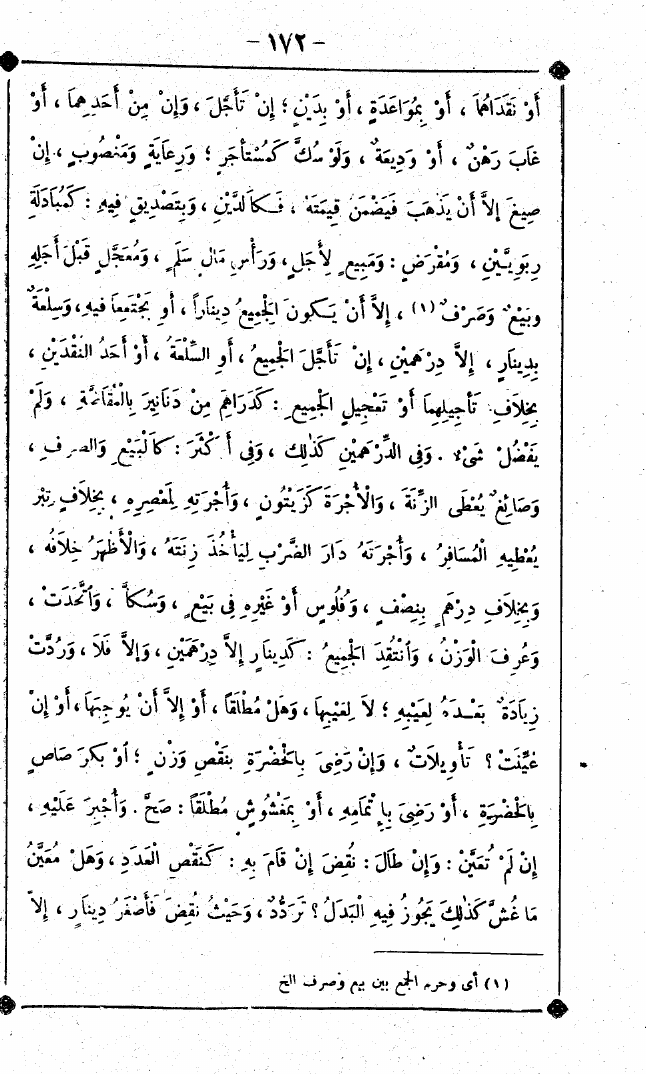 - ١٧٢ -
أَوْ نَقَدَاهُمَا ، أَوْ بِمُوَاعَدَةٍ ، أَوْ بِدَيْنٍ ؛ إِنْ تَأَجَّلَ ، وَإِنْ مِنْ أَحَدِهِمَا ، أَوْ
غَابَ رَهْنٌ ، أَوْ وَدِيعَةٌ ، وَلَوْ سُكَّ كَمُسْتَأْجَرٍ ؛ وَرِعَايَةٍ وَمَغْصُوبٍ ، إِنْ
صِيغَ إِلاَّ أَنْ يَذْهَبَ فَيَضْمَنُ قِيمَتَهُ ، فَكَالدَّيْنِ ، وَبِتَصْدِيقٍ فِيهِ : كَمُبَادَلَةِ
رِبَوِيَّيْنِ ، وَمُقْرَضٍ : وَمَبِيعٍ لِأَجَلٍ ، وَرَأْسِ مَالِ سَلَمٍ ، وَمُعَجَّلٍ قَبْلَ أَجَلِهِ
وَبَيْعٌ وَصَرْفٌ (١) ، إِلاَّ أَنْ يَكُونَ الْجَمِيعُ دِينَاراً ، أَوِ يَجْتَمِعَا فِيهِ ، وَسِلْعَةٌ
بِدِينَارٍ ، إِلاَّ دِرْهَمَيْنِ ، إِنْ تَأَجَّلَ الْجَمِيعُ ، أَوِ السِّلْعَةُ ، أَوْ أَحَدُ النَّقْدَيْنِ ،
بِخِلَافِ تَأْجِيلِهِمَا أَوْ تَعْجِيلِ الْجَمِيعِ : كَدَرَاهِمَ مِنْ دَنَانِيرَ بِالْمُقَاصَّةِ ، وَلَمْ
يَفْضُلْ شَيْءٌ . وَفِي الدِّرْهَمَيْنِ كَذٰلِكَ ، وَفِي أَكْثَرَ : كَالْبَيْعِ وَالصرفِ ،
وَصَائِغٌ يُعْطَى الزِّنَةَ ، وَالْأُجْرَةَ كَزَيْتُونٍ ، وَأُجْرَتِهِ لِمَعْصِرِهِ ، بِخِلَافِ تِبْرٍ
يُعْطِيهِ الْمُسَافِرُ ، وَأُجْرَتَهُ دَارَ الضَّرْبِ لِيَأْخُذَ زِنَتَهُ ، وَالْأَظْهَرُ خِلَافُهُ ،
وَبِخِلَافِ دِرْهَمٍ بِنِصْفٍ ، وَفُلُوسٍ أَوْ غَيْرِهِ فِي بَيْعٍ ، وَسُكَّا ، وَاتَّحَدَتْ ،
وَعُرِفَ الْوَزْنُ ، وَانْتُقِدَ الْجَمِيعُ : كَدِينَارٍ إِلاَّ دِرْهَمَيْنِ ، وَإِلاَّ فَلَا ، وَرُدَّتْ
زِيَادَةٌ بَعْدَهُ لِعَيْبِهِ ؛ لاَ لِعَيْبِهَا ، وَهَلْ مُطْلَقاً ، أَوْ إِلاَّ أَنْ يُوجِبَهَا ، أَوْ إِنْ
عُيِّنَتْ ؟ تَأْوِيلَاتٌ ، وَإِنْ رَضِيَ بِالْحَضْرَةِ بِنَقْصِ وَزْنٍ ؛ أَوْ بكَرَصَاصٍ
بِالْحَضْرَةِ ، أَوْ رَضِيَ بِإِتْمَامِهِ ، أَوْ بِمَغْشُوشٍ مُطْلَقاً : صَحَّ . وَأُجْبِرَ عَلَيْهِ ،
إِنْ لَمْ تُعَيَّنْ : وَإِنْ طَالَ : نُقِضَ إِنْ قَامَ بِهِ : كَنَقْصِ الْعَدَدِ ، وَهَلْ مُعَيَّنُ
مَا غُشَّ كَذٰلِكَ يَجُوزُ فِيهِ الْبَدَلُ ؟ تَرَدُّدٌ ، وَحَيْثُ نُقِضَ فَأَصْغَرُ دِينَارٍ ، إِلاَّ
(١) أى وحرم الجمع بين بيع وصرف الخ